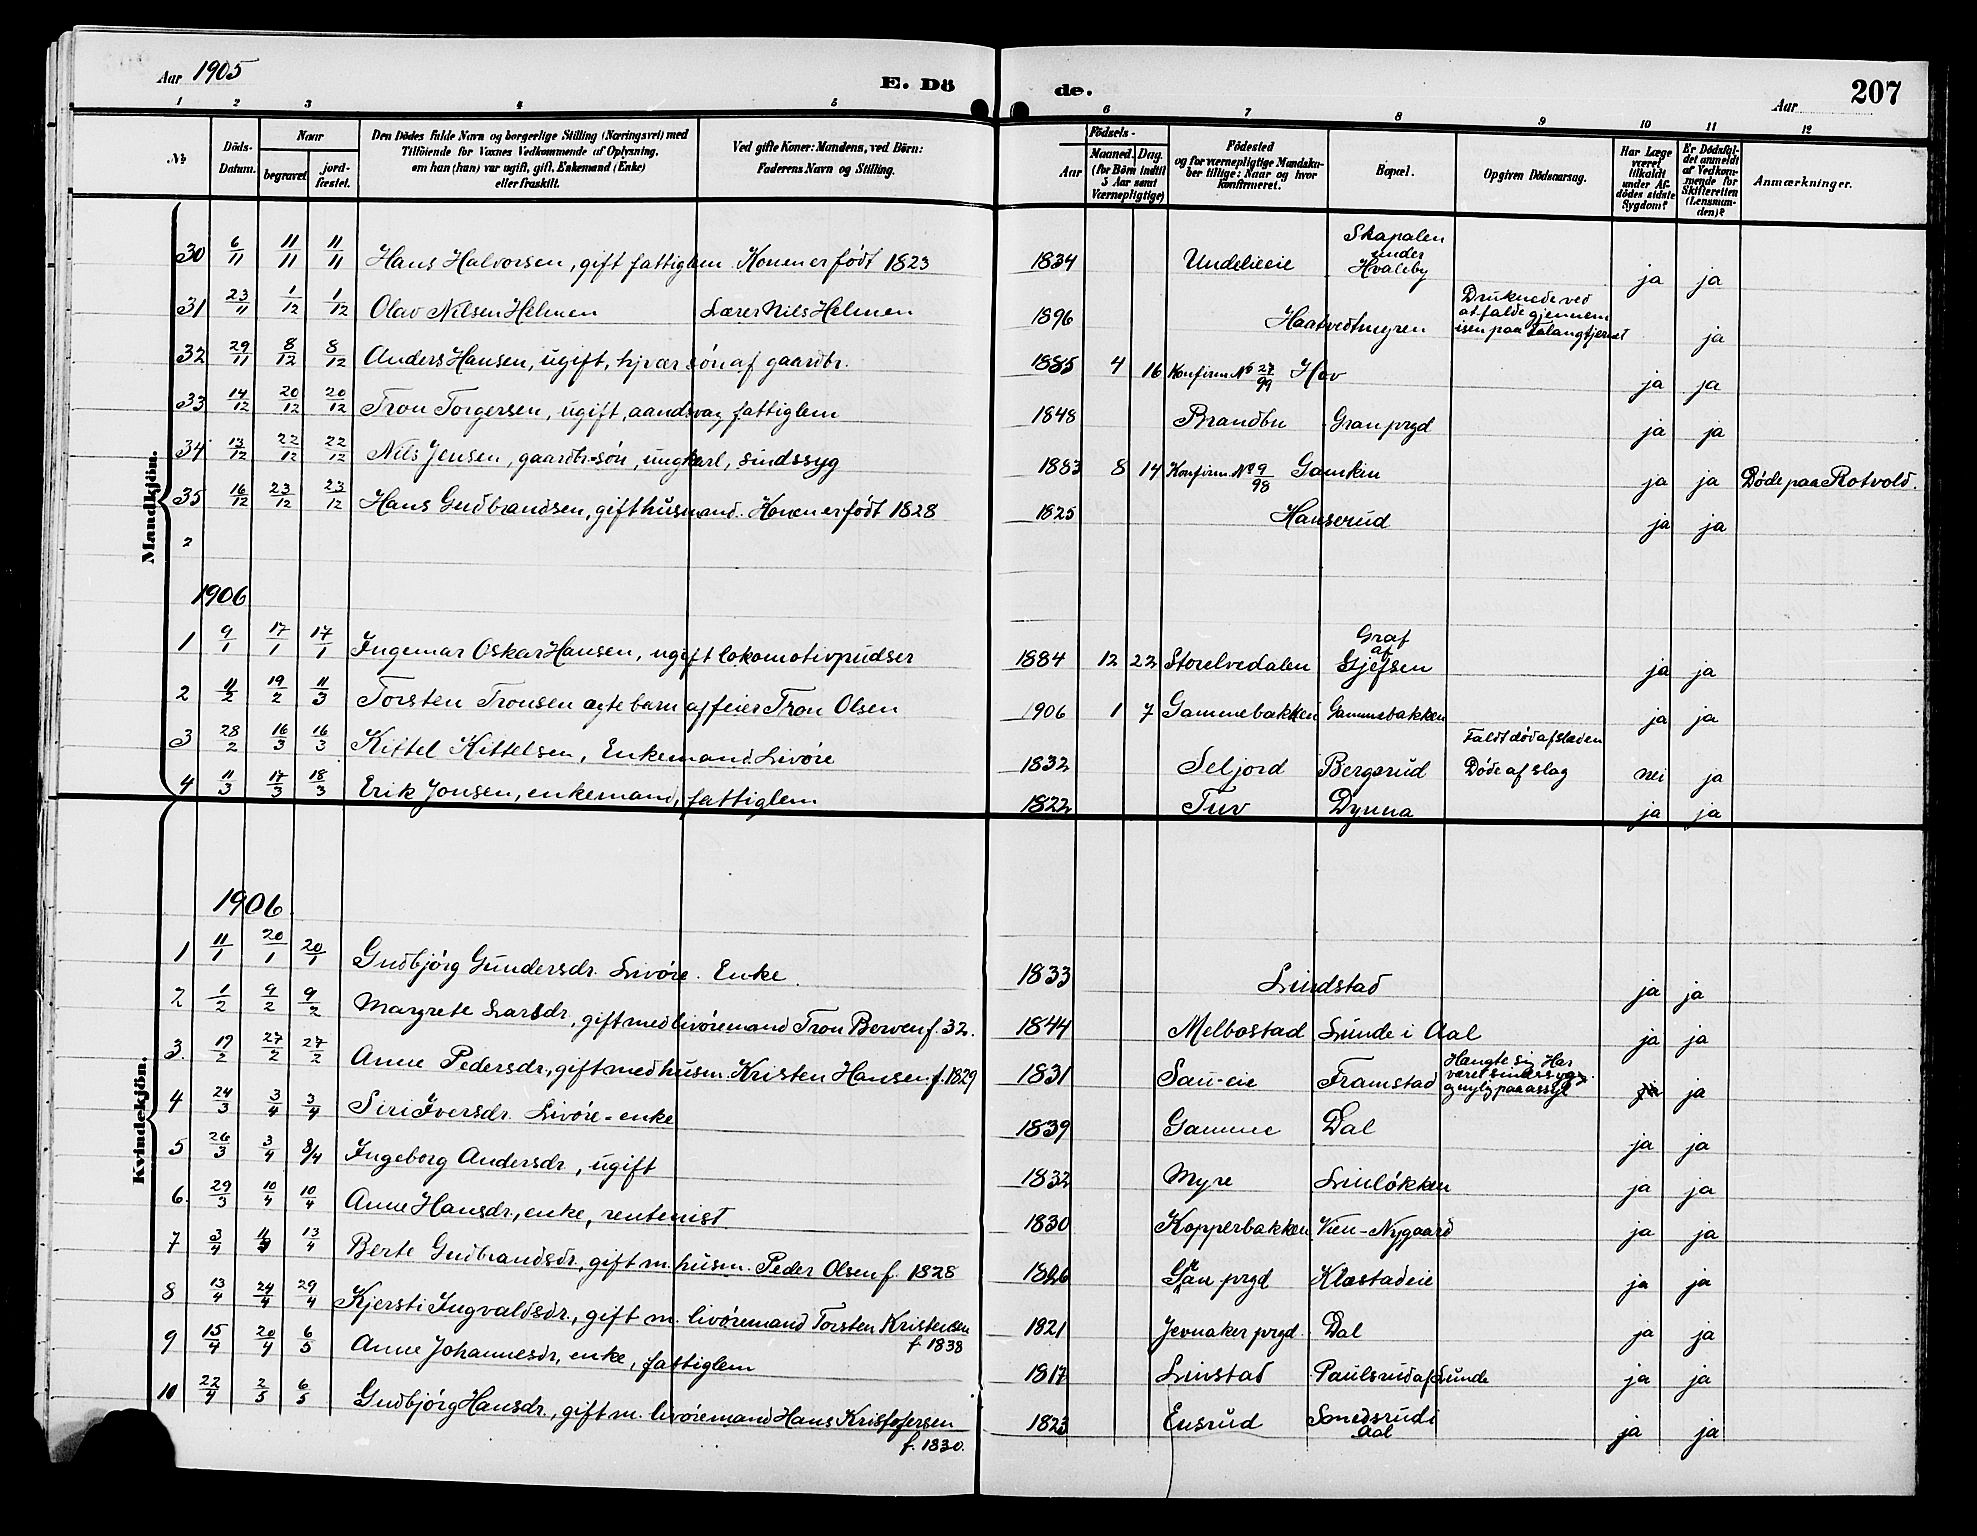 Aar 1905 E. Dö de. Aar 207
1 2 3 4 5 6 7 8 9 10 11 12
No Döds-Datum. Naar begravet jord-fæstet. Den Dödes fulde Navn og borgerlige Stilling (Næringsvei) med Tilföiende for Voxnes Vedkommende af Oplysning, om han (hun) var ugift, gift, Enkemand (Enke) eller fraskilt. Ved gifte Koner: Mandens, ved Börn: Faderens Navn og Stilling. Födsels- Aar Maaned. Dag. (for Börn indtil 5 Aar samt Værnepligtige) Födested og for værnepligtige Mandskaber tillige: Naar og hvor konfirmeret. Bopæl. Opgiven Dödsaarsag. Har Læge været tilkaldt under Afdödes sidste Sygdom? Er Dödsfaldet anmeldt af Vedkommende for Skifteretten (Lensmanden)? Anmærkninger.
Mandkjön.
30 6/11 11/11 11/11 Hans Halvorsen, gift fattiglem. Konen er født 1823 1834 Undelieeie Skapalen under Hvaleby ja ja
31 23/11 1/12 1/12 Olav Nilsen Helmen Lærer Nils Helmen 1896 Haatvedtmyren Druknede ved at falde gjennem isen paa ja
32 29/11 8/12 8/12 Anders Hansen, ugift, kjær søn af gaardbr. 1885 4 16 Konfirm No 27/99 Hov ja ja
33 14/12 20/12 20/12 Tron Torgersen, ugift, aandsvag, fattiglem 1848 Brandbu Gran prgd ja ja
34 13/12 22/12 22/12 Nils Jensen, gaardbr-søn, ungkarl, sindssyg 1883 8 14 Konfirm No 9/98 Gamkin ja ja Døde paa Rotvold.
35 16/12 23/12 23/12 Hans Gudbrandsen, gift husmand. Konen er født 1828 1825 Hanserud ja ja
2
1906
1 9/1 17/1 17/1 Ingemar Oskar Hansen, ugift lokomotivpudser 1884 12 22 Storelvedalen Graf af Gjefsen ja ja
2 11/2 19/2 11/3 Torsten Tronsen ægte barn af feier Tron Olsen 1906 1 7 Gammebakken Gammebakken ja ja
3 28/2 16/3 16/3 Kittel Kittelsen, Enkemand Livøre 1832 Seljord Bergsrud Faldt død af slæden Døde af slag nei ja
4 11/3 17/3 18/3 Erik Jonsen, enkemand, fattiglem 1822 Tuv Dynna ja ja
Kvindekjön.
1906
1 11/1 20/1 20/1 Gudbjørg Gundersdr. Livøre. Enke. 1833 Lindstad ja ja
2 1/2 9/2 9/2 Margrete Larsdr, gift med livøremand Tron Berven f. 32. 1844 Melbostad Lunde i Aal ja ja
3. 19/2 27/2 27/2 Anne Pedersdr, gift med husm. Kristen Hansen f. 1829 1831 Sau-eie Framstad Hængte sig. Har været sindssyg og nylig paa assyl ja
4 24/3 3/4 3/4 Siri Iversdr. Livøre-enke 1839 Gamme Dal ja ja
5 26/3 3/4 8/4 Ingeborg Andersdr, ugift 1832 Myre Linløkken ja ja
6. 29/3 10/4 10/4 Anne Hansdr., enke, rentenist 1830 Kopperbakken Vien-Nygaard ja ja
7 3/4 11 13/4 Berte Gudbrandsdr, gift m. husm. Peder Olsen f. 1828 1826 Gran prgd Klæstadeie ja ja
8 13/4 24/4 29/4 Kjersti Ingvaldsdr., gift m. livøremand Torsten Kristensen f. 1838 1821 Jevnaker prgd. Dal ja ja
9 15/4 20/4 6/5 Anne Johannesdr, enke, fattiglem 1817 Linstad Paulsrud af Lunde ja ja
10 22/4 2/5 6/5 Gudbjørg Hansdr, gift m. livøremand Hans Kristofersen f. 1830. 1823 Ensrud Smedsrud i Aal ja ja